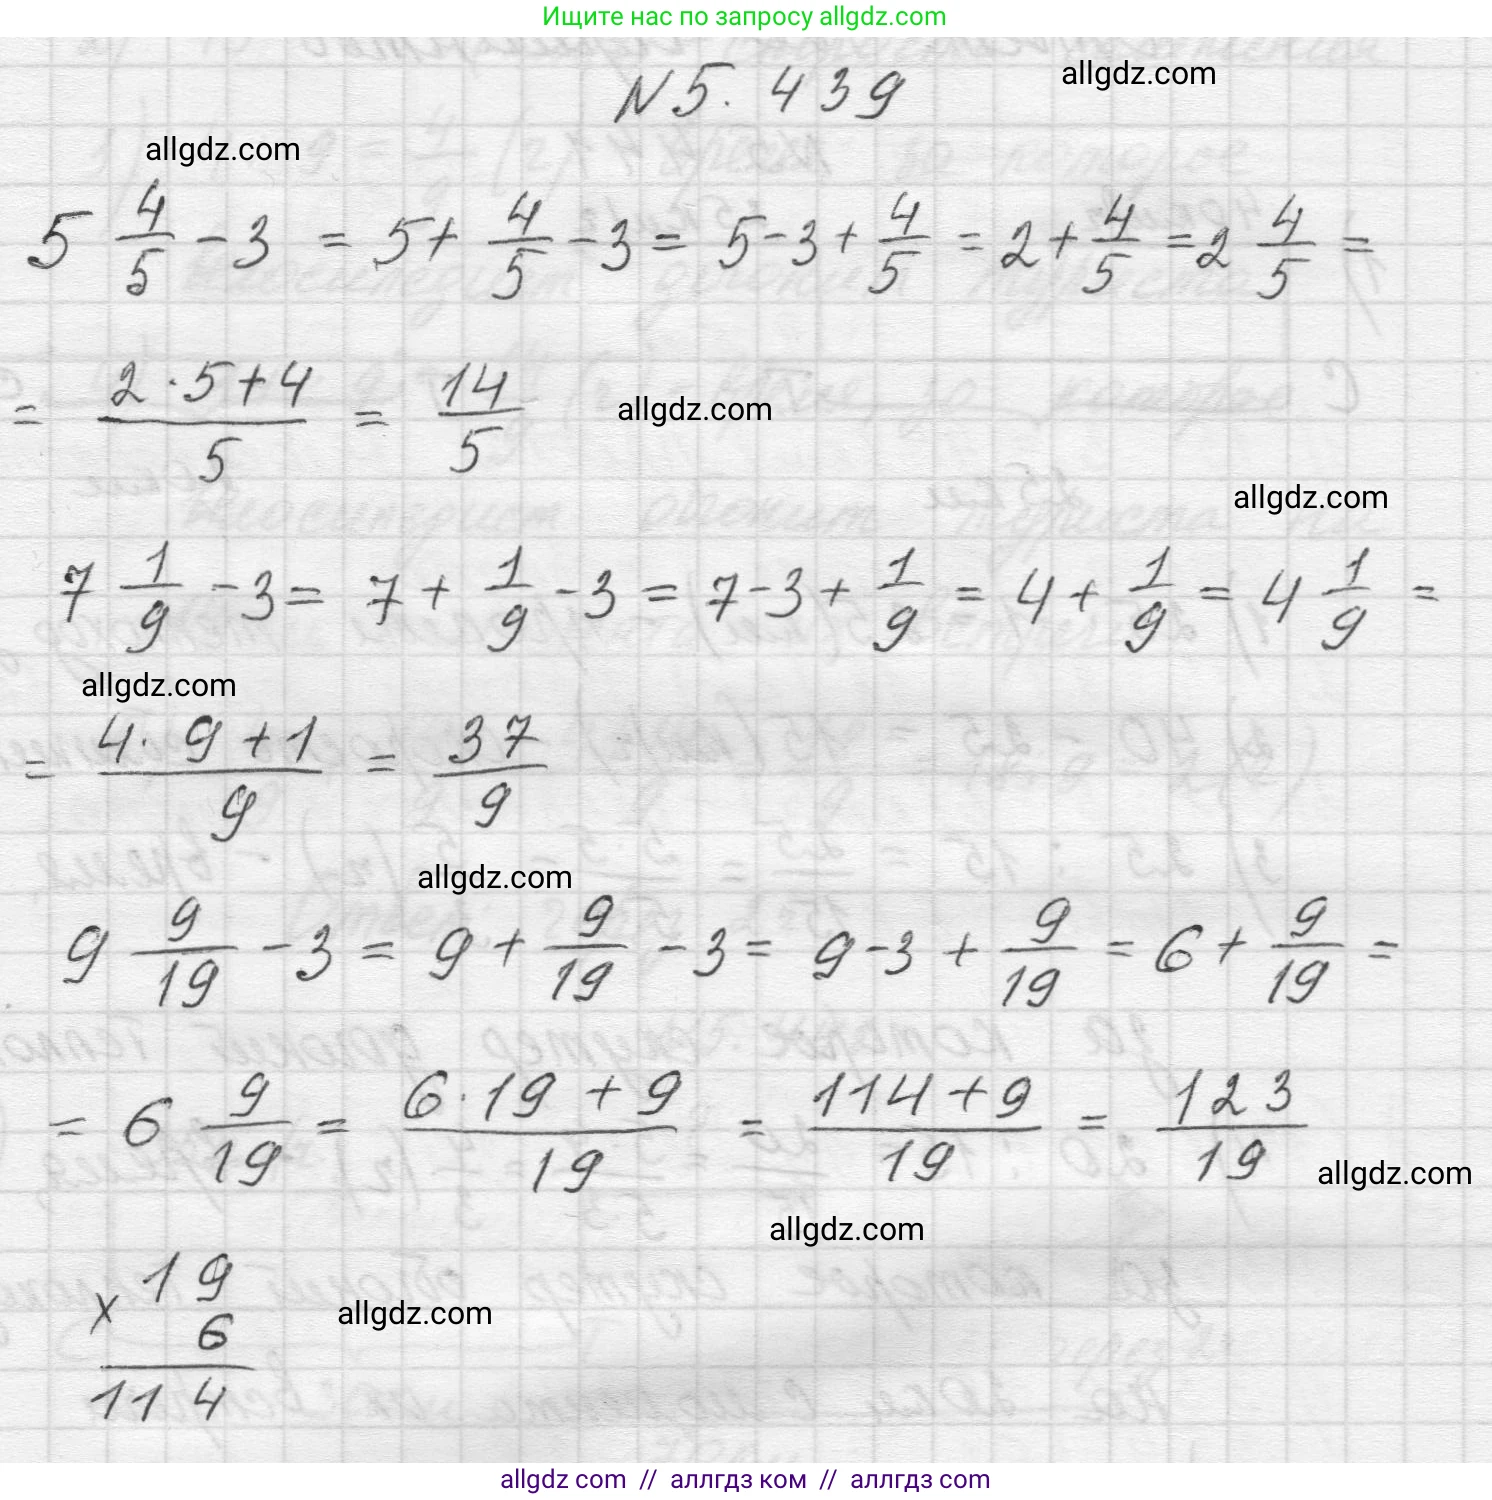 Ищите нас по запросу allgdz.com
N 5. 439
allgdz.com
allgdz.com
5 4/5 - 3 = 5 + 4/5 - 3 = 5 - 3 + 4/5 = 2 + 4/5 = 2 4/5 =
= (2 · 5 + 4)/5 = 14/5
allgdz.com
allgdz.com
7 1/9 - 3 = 7 + 1/9 - 3 = 7 - 3 + 1/9 = 4 + 1/9 = 4 1/9 =
allgdz.com
= (4 · 9 + 1)/9 = 37/9
allgdz.com
9 9/19 - 3 = 9 + 9/19 - 3 = 9 - 3 + 9/19 = 6 + 9/19 =
= 6 9/19 = (6 · 19 + 9)/19 = (114 + 9)/19 = 123/19
allgdz.com
allgdz.com
× 19
6
allgdz.com
114
allgdz.com // аллгдз ком // аллгдз com